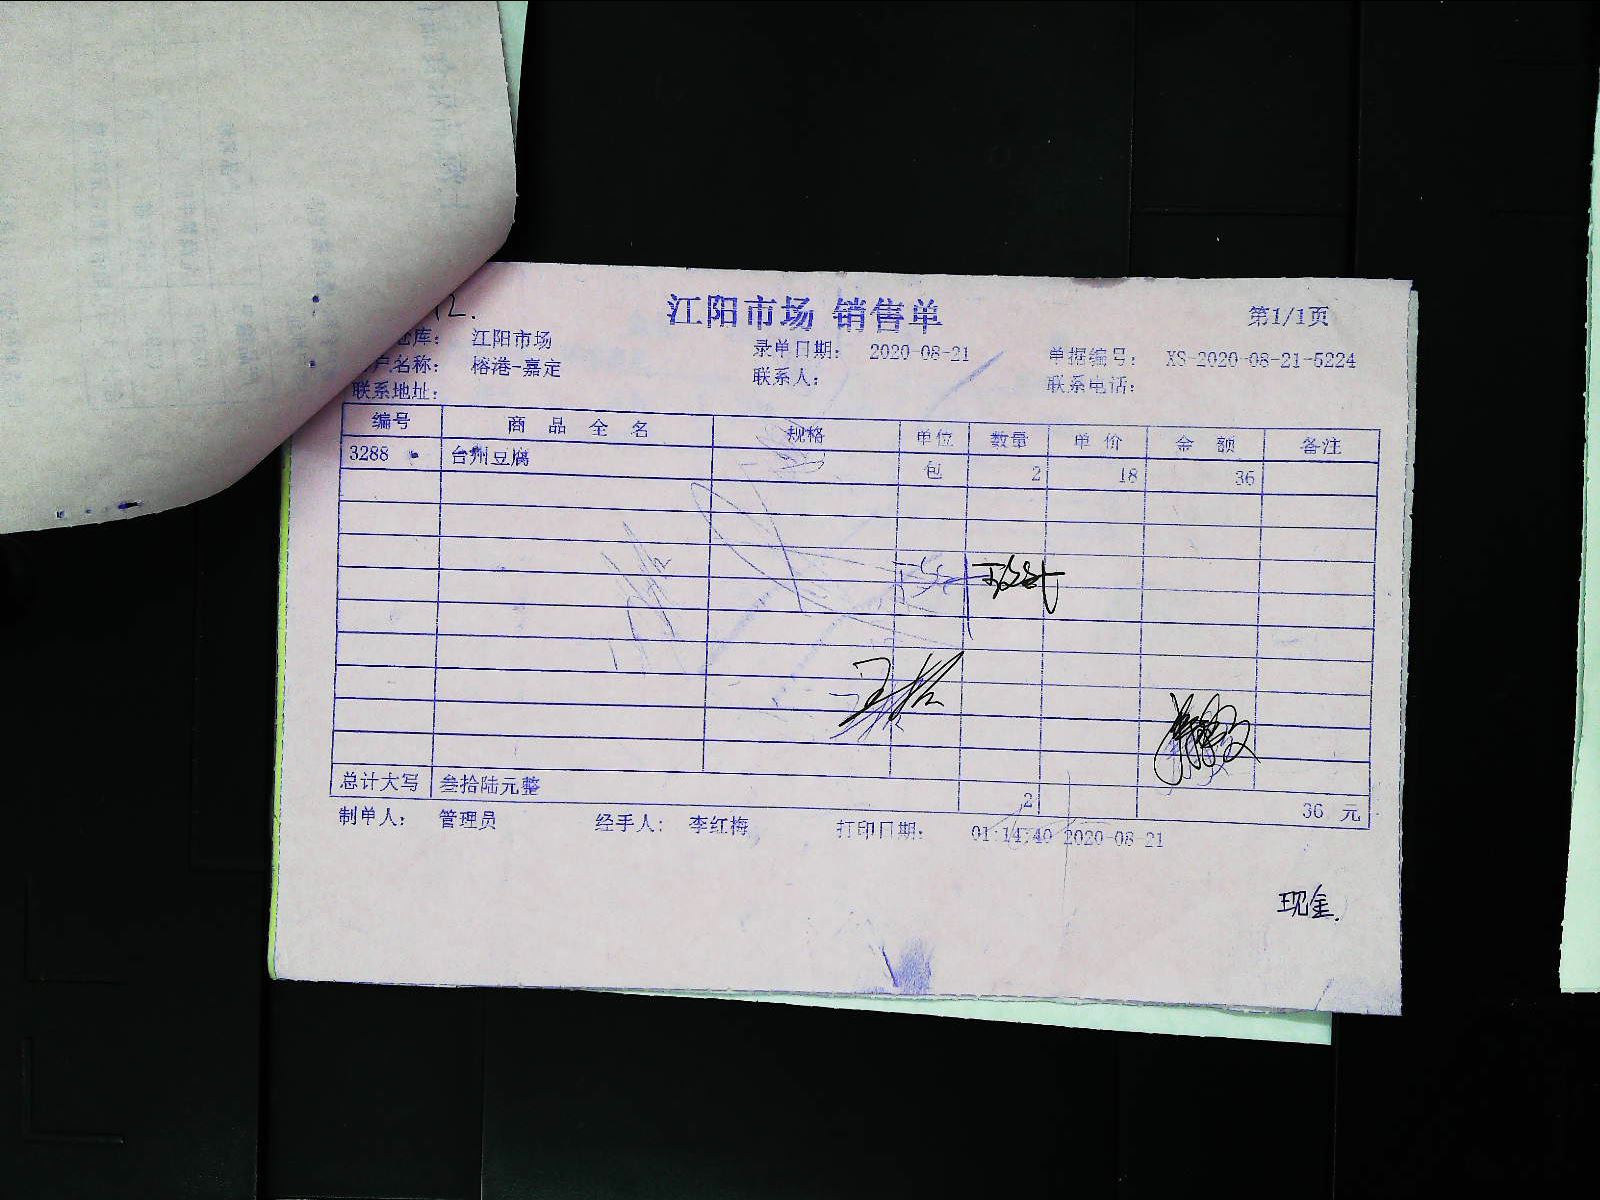 江阳市场 销售单
第1/1页
库： 江阳市场
录单日期： 2020-08-21
单据编号： XS-2020-08-21-5224
户名称： 榕港-嘉定
联系人：
联系电话：
联系地址：
编号 商品全名 规格 单位 数量 单价 金额 备注
3288 台州豆腐 包 2 18 36
总计大写 叁拾陆元整 2 36 元
制单人： 管理员 经手人： 李红梅 打印日期： 01:14:40 2020-08-21
现金.